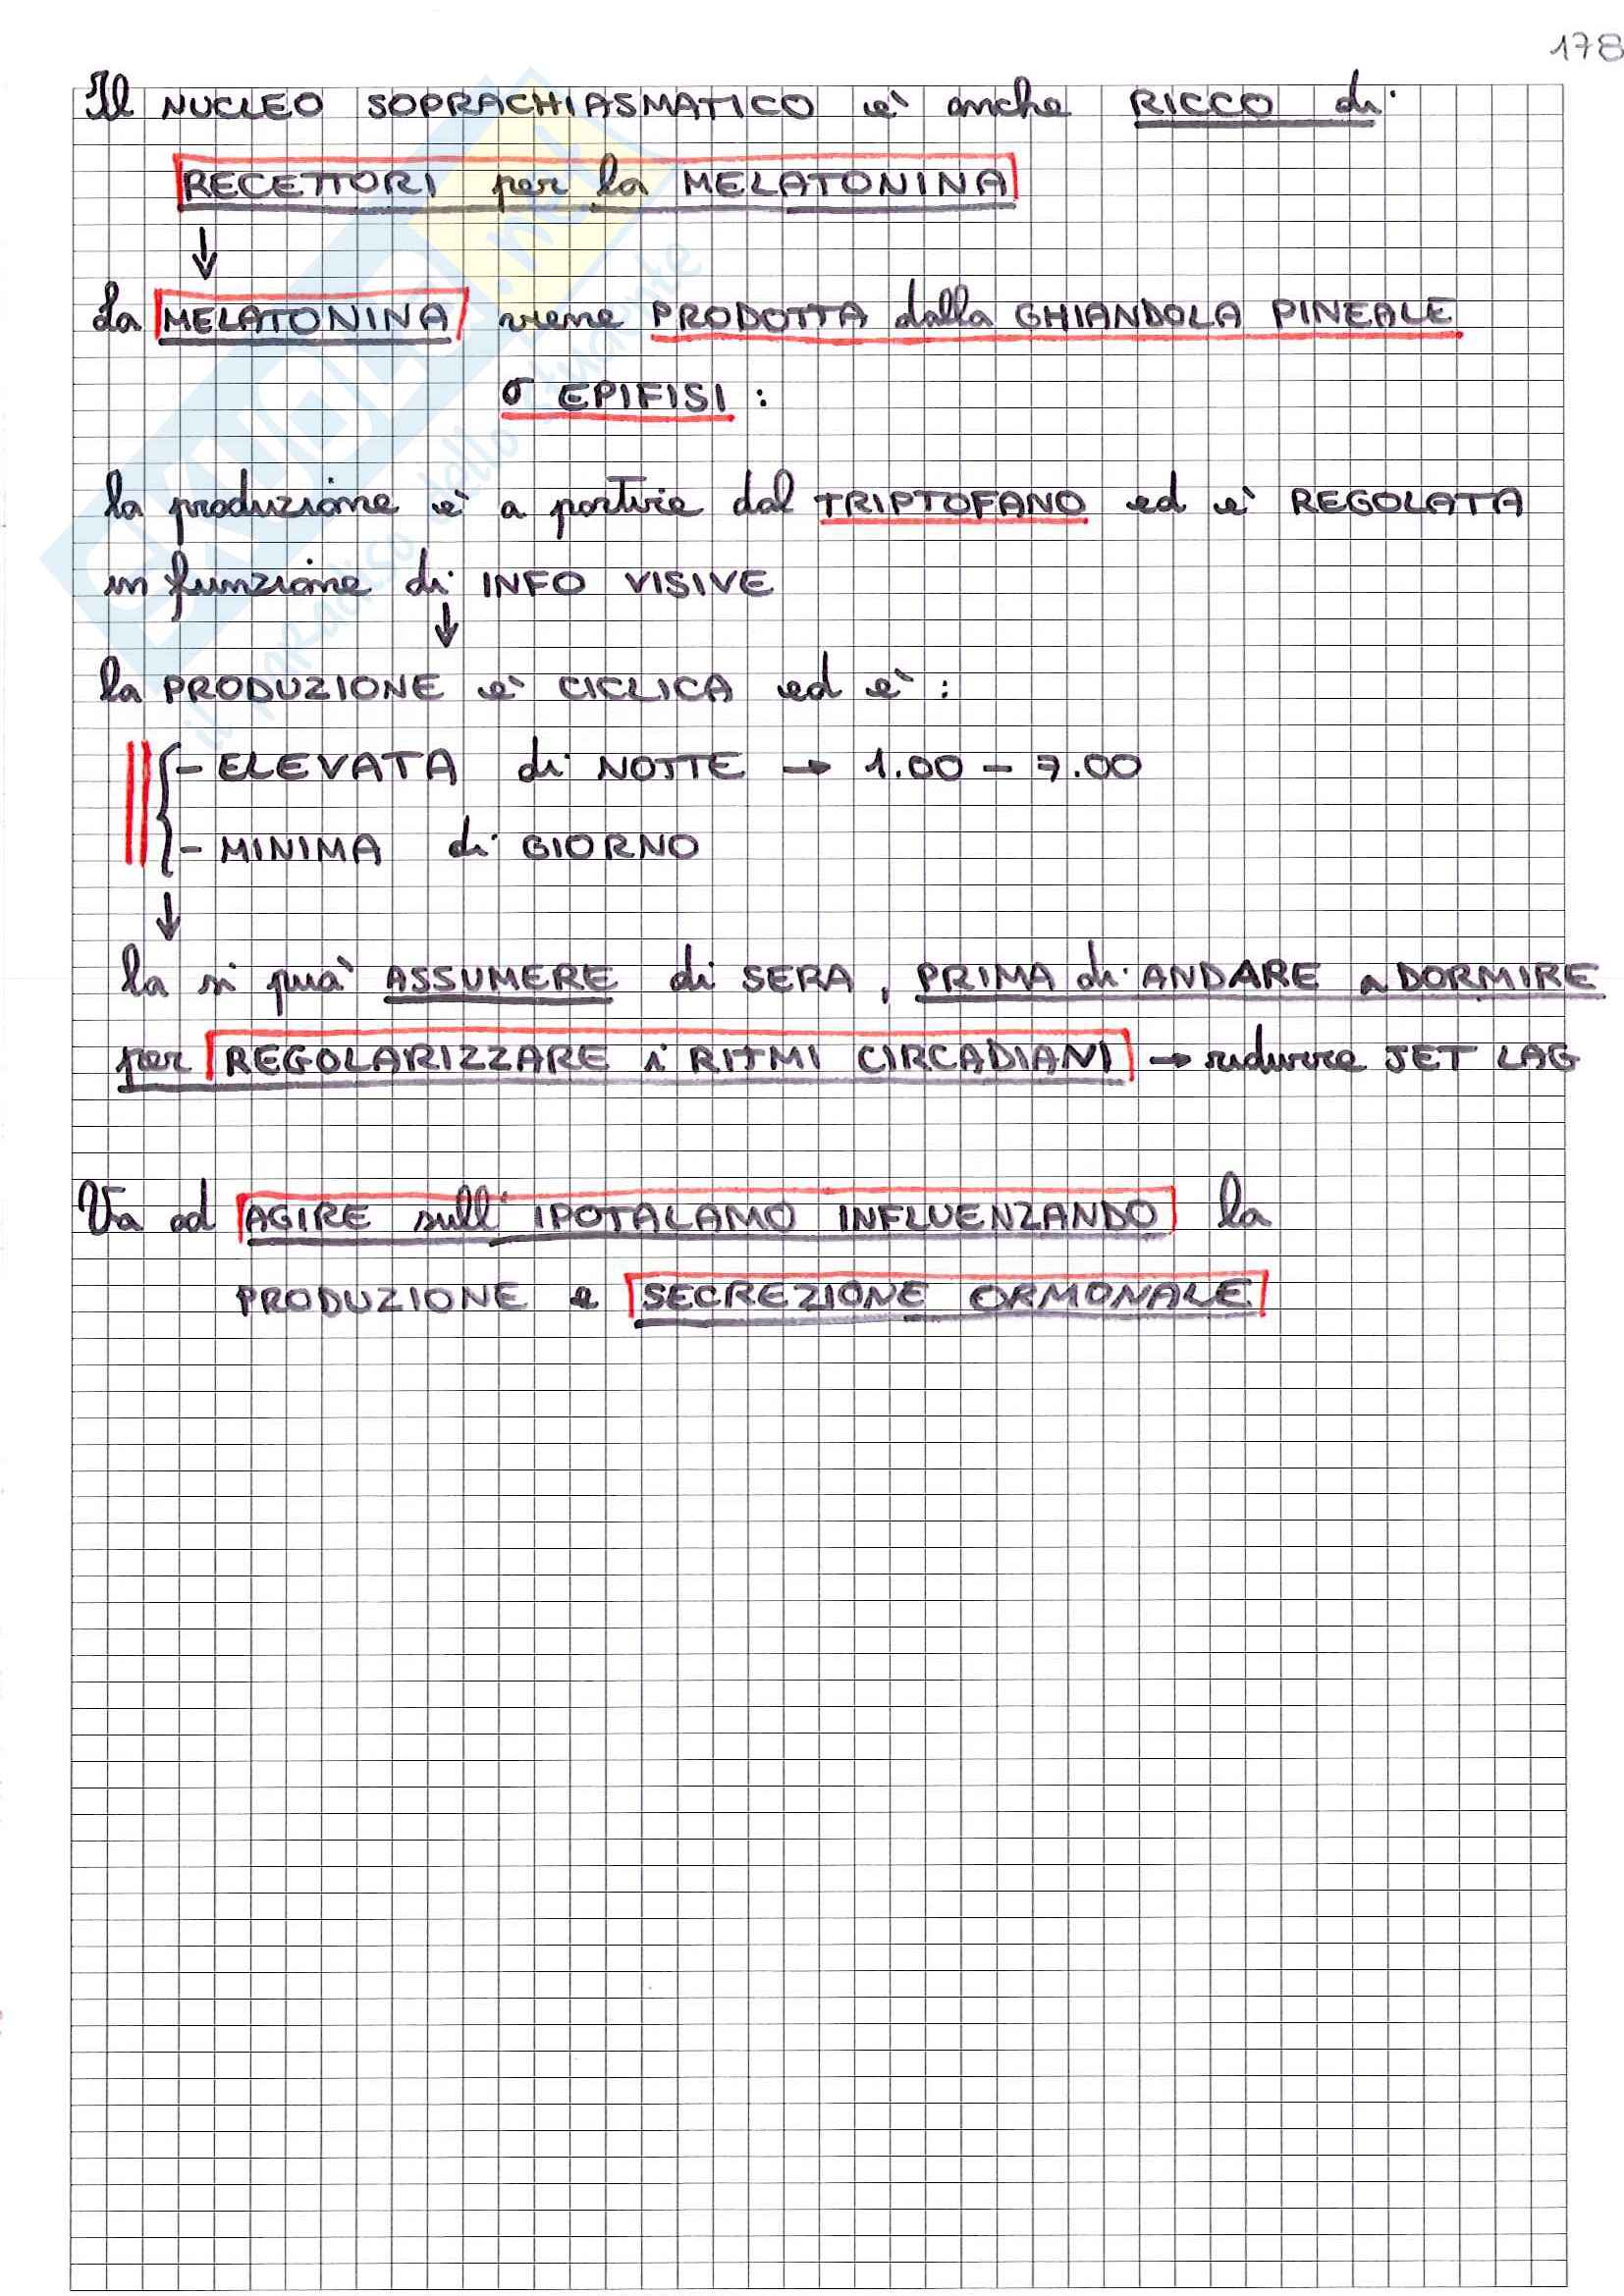 178
Il NUCLEO SOPRACHIASMATICO è anche RICCO di
RECETTORI per la MELATONINA
↓
La MELATONINA viene PRODOTTA dalla GHIANDOLA PINEALE
o EPIFISI :
la produzione è a partire dal TRIPTOFANO ed è REGOLATA
in funzione di INFO VISIVE
↓
la PRODUZIONE è CICLICA ed è :
- ELEVATA di NOTTE → 1.00 - 7.00
- MINIMA di GIORNO
↓
la si può ASSUMERE di SERA, PRIMA di ANDARE a DORMIRE
per REGOLARIZZARE i RITMI CIRCADIANI → ridurre JET LAG
Va ad AGIRE sull' IPOTALAMO INFLUENZANDO la
PRODUZIONE e SECREZIONE ORMONALE
SKUOLA.net
il paradiso dello studente